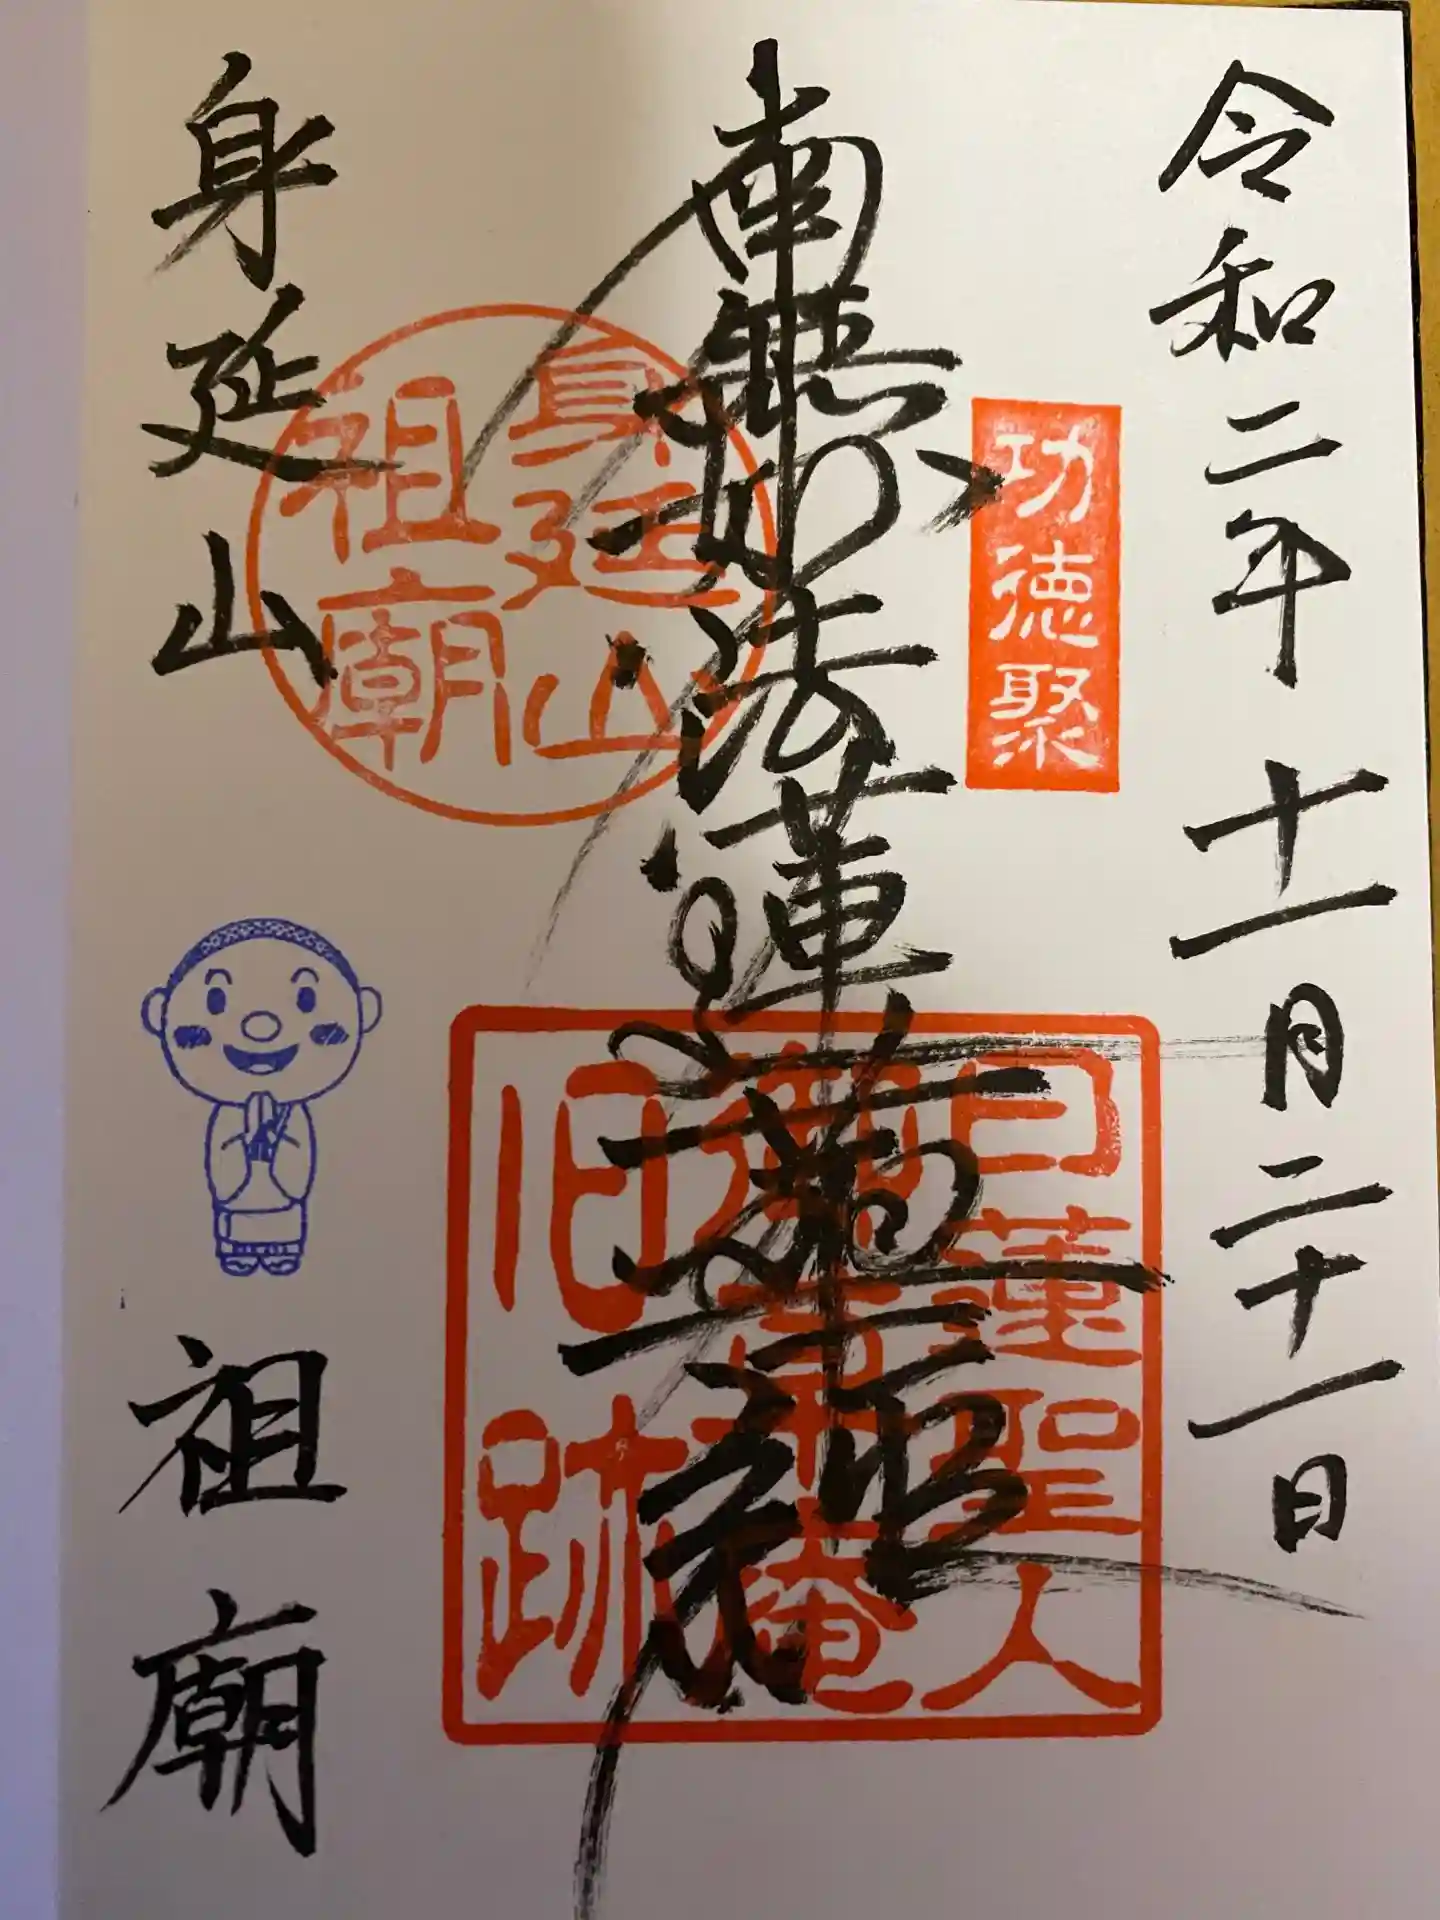 令和二年十一月二十一日
功徳聚
南無妙法蓮華経
日蓮聖人
御草庵
旧跡
身延山
祖廟
身延山
祖廟